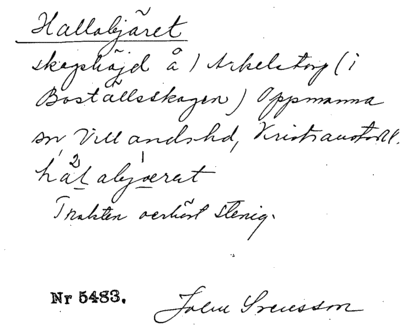 Hallabjäret
skogshöjd å) Arkelstorp (i
Boställsskogen) Oppmanna
sn Villandshd, Kristianstads l.
hál abjærat
Trakten oerhört stenig.
Nr 5483. John Svensson